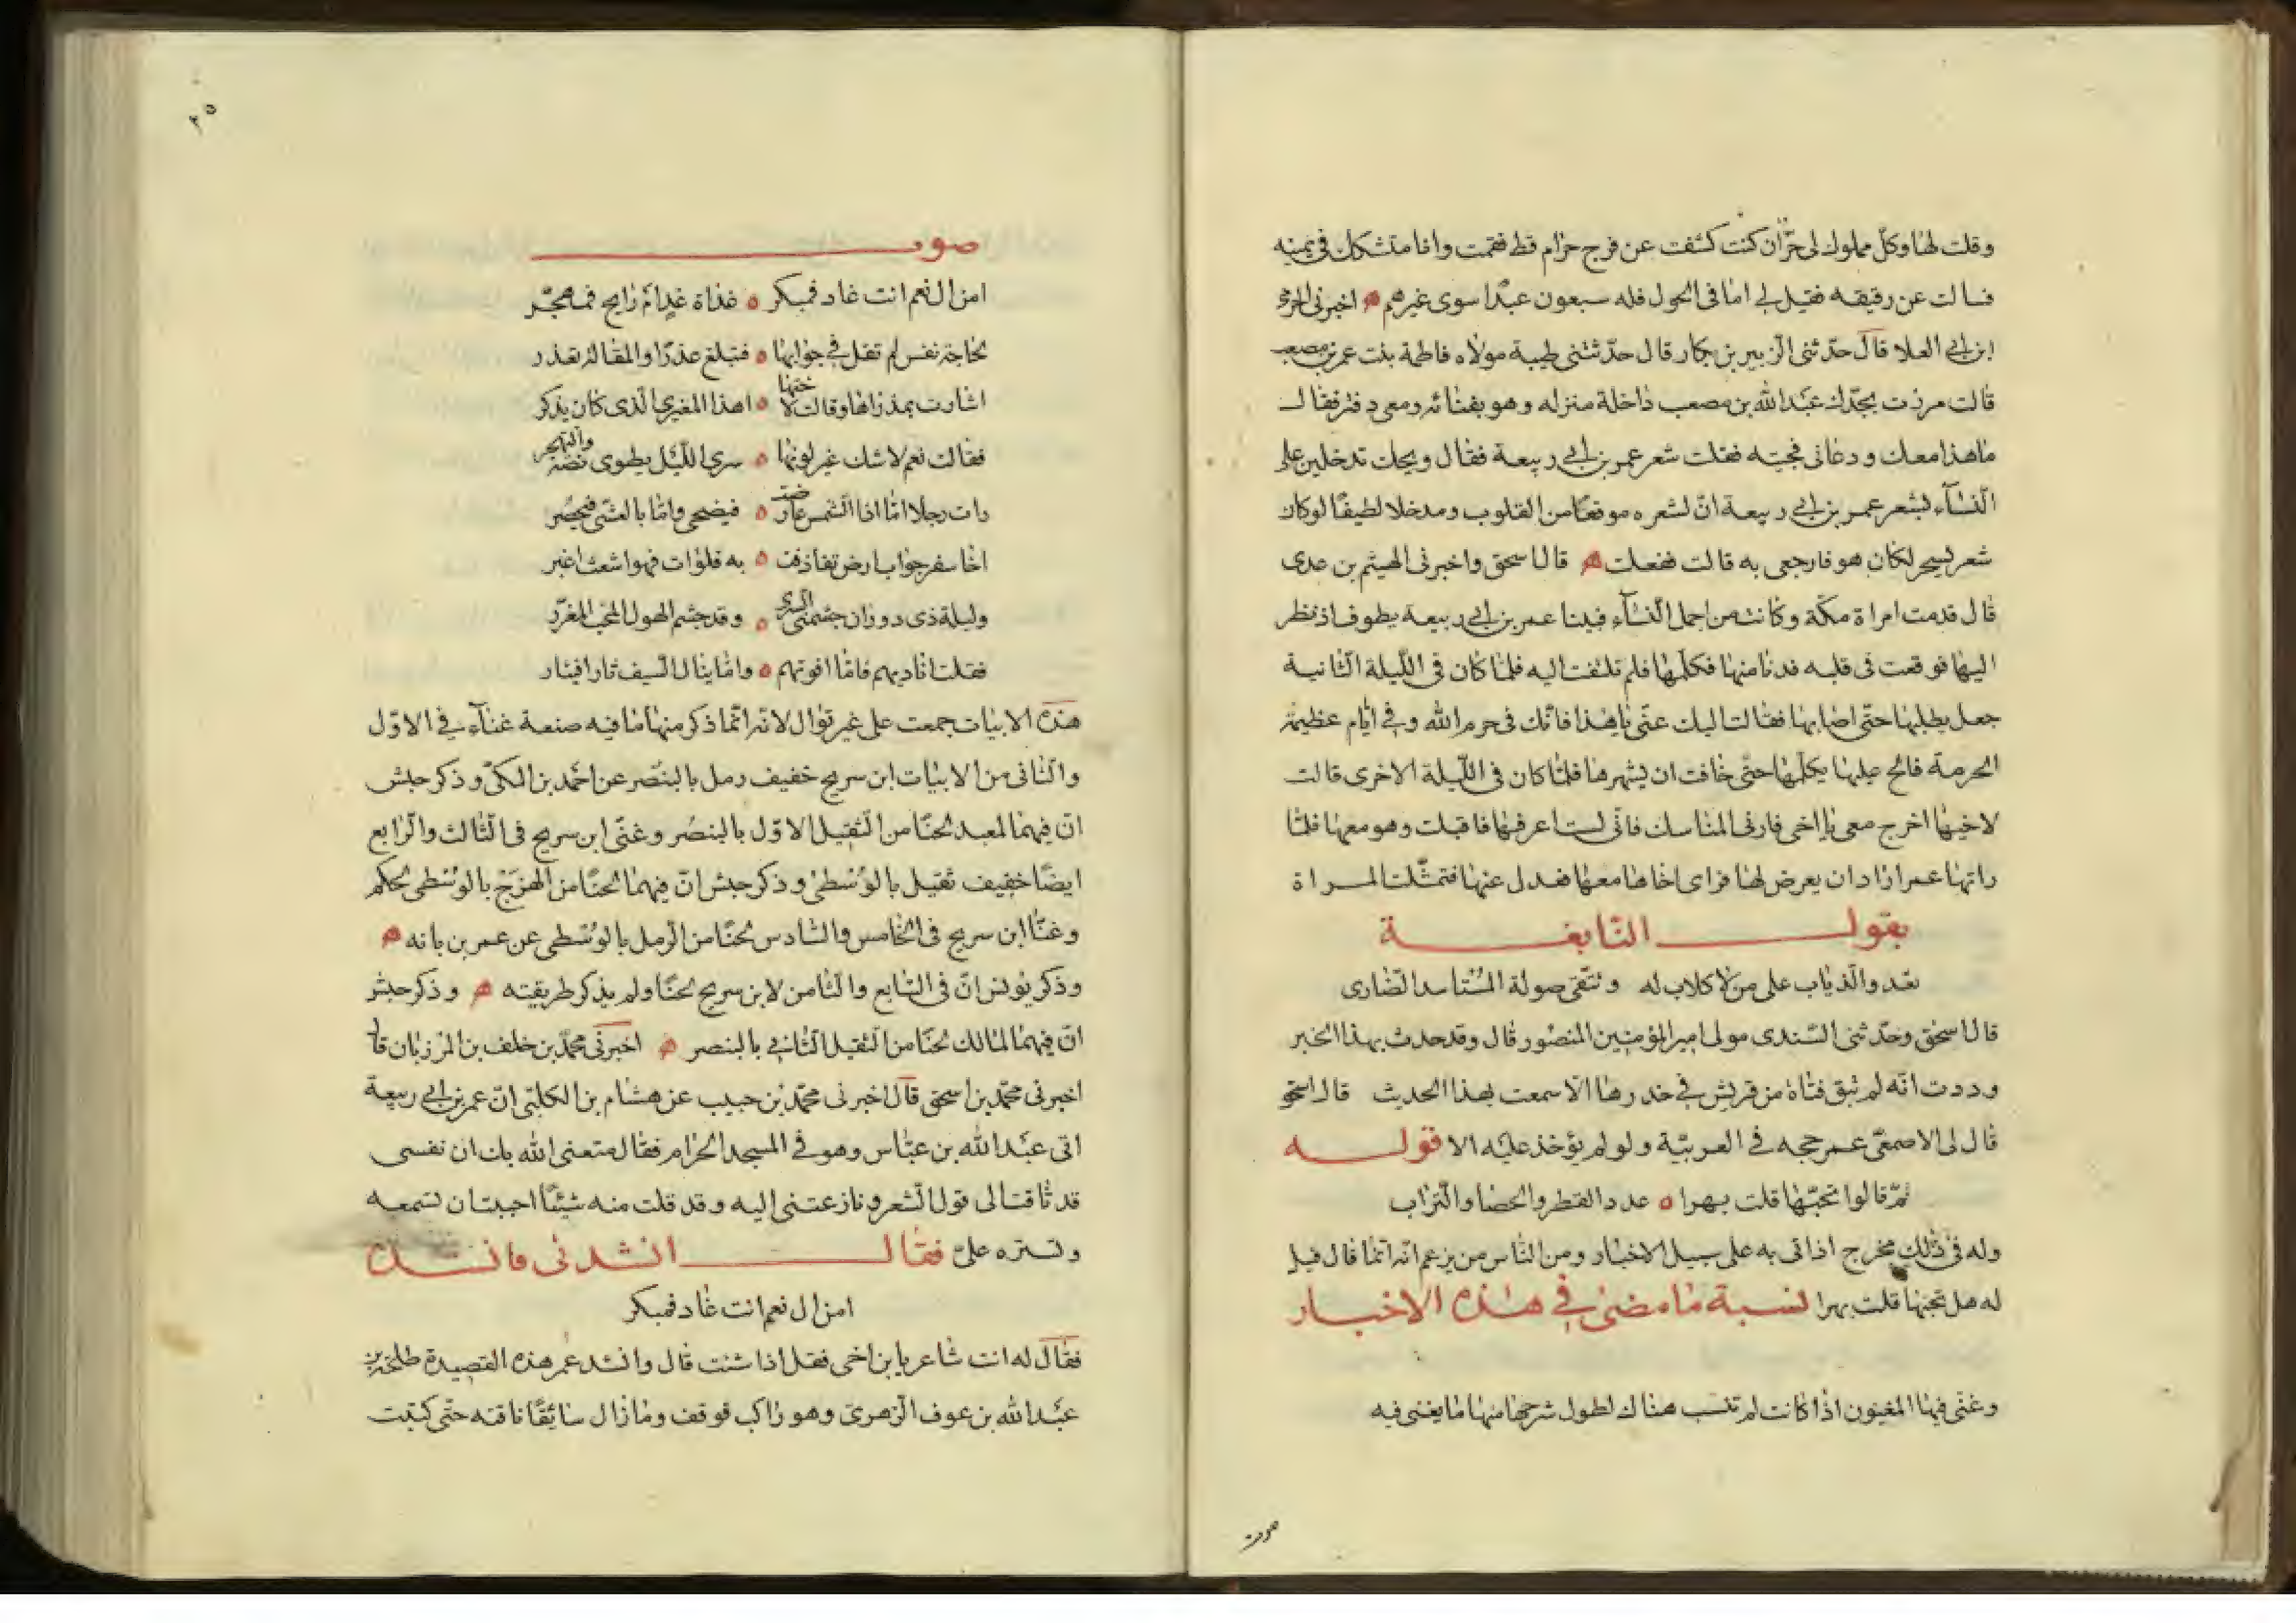 وقلت لها وكلّ مملوك لى حرّ ان كنت كشفت عن فرج حرام قط فقمت وانا متشكك فى يمينه
فسالت عن رقيقه فقيل لي اما فى الحول فله سبعون عبدًا سوى غيرهم ۞ اخبرنى الحرمى
ابن ابي العلا قال حدّثنى الزبير بن بكار قال حدّثتنى طيبة مولاه فاطمة بنت عمر بن مصعب
قالت مررت بجدّك عبد الله بن مصعب داخلة منزله وهو بفنائه ومعى دفتر فقال
ما هذا معك ودعانى فجيته فقلت شعر عمر بن ابي ربيعة فقال ويحك تدخلين على
النّسآء بشعر عمر بن ابي ربيعة انّ لشعره موقعًا من القلوب ومدخلا لطيفًا لو كان
شعر يسحر لكان هو فارجعى به قالت ففعلت ۞ قال اسحق واخبرنى الهيثم بن عدى
قال قدمت امراة مكّة وكانت من اجمل النّسآء فبينا عمر بن ابي ربيعة يطوف اذ نظر
اليها فوقعت فى قلبه فدنا منها فكلّمها فلم تلتفت اليه فلمّا كان فى اللّيلة الثانية
جعل يطلبها حتّى اصابها فقالت اليك عنّى يا هذا فانّك فى حرم الله وفي ايّام عظيمة
الحرمة فالح عليها يكلّمها حتّى خافت ان يشهرها فلمّا كان فى اللّيلة الاخرى قالت
لاخيها اخرج معى يا اخى فارنى المناسك فانّى لست اعرفها فاقبلت وهو معها فلمّا
راتها عمر اراد ان يعرض لها فراى اخاها معها فعدل عنها فتمثّلت المراة
بقول النّابغة
تعدو الذياب على من لا كلاب له وتتّقى صولة المستاسد الضّارى
قال اسحق وحدّثنى السّندى مولى امير المؤمنين المنصور قال وقد حدث بهذا الخبر
وددت انّه لم تبق فتاة من قريش في خدرها الّا سمعت بهذا الحديث قال اسحق
قال لى الاصمعىّ عمر حجه في العربيّة ولو لم يؤخذ عليه الا قوله
ثمّ قالوا تحبّها قلت بهرا ٥ عدد القطر والحصا والتّراب
وله فى ذلك مخرج اذ اتى به على سبيل الاخبار ومن النّاس من يزعم انّه انّما قال قيل
له هل تحبها قلت بهرا نسبة ما مضى في هذه الاخبار
وغنّى فيها المغنون اذا كانت لم تنسب هناك لطول شرحها منها ما يغنى فيه
صوت
٢٥
صوت
امن ال نعم انت غاد فمبكر ٥ غداة غد ام رايح فمهجّر
لحاجة نفس لم تقل في جوابها ٥ فتبلغ عذرًا والمقالة تعذر
اشارت بمدراها وقالت لاختها ٥ اهذا المغيري الّذى كان يذكر
فقالت نعم لا شك غير لونها ٥ سري اللّيل يطوى نصّه والتهجر
رات رجلا امّا اذا الشّمس عارضت ٥ فيضحى وامّا بالعشّى فيخصر
اخا سفر جواب ارض تقاذفت ٥ به فلوات فهو اشعث اغبر
وليلة ذى دوران جشمتنى السرى ٥ وقد جشم الهول المحب المغرّر
فقلت اناديهم فامّا افوتهم ٥ وامّا ينال السّيف ثارا فيثار
هذه الابيات جمعت على غير توال لانّه انّما ذكر منها ما فيه صنعة غنآء في الاوّل
والثّانى من الابيات ابن سريج خفيف رمل بالبنصر عن احمد بن المكىّ وذكر حبش
انّ فيهما لمعبد لحنًا من الثّقيل الاوّل بالبنصر وغنّى ابن سريج فى الثّالث والرّابع
ايضًا خفيف ثقيل بالوسطى وذكر حبش انّ فيهما لحنًا من الهزج بالوسطى لحكم
وغنّا ابن سريج فى الخامس والسّادس لحنًا من الرّمل بالوسطى عن عمر بن بانه ۞
وذكر يونس انّ فى السّابع والثّامن لابن سريج لحنًا ولم يذكر طريقته ۞ وذكر حبش
انّ فيهما لمالك لحنًا من الثقيل الثّاني بالبنصر ۞ اخبرنى محمّد بن خلف بن المرزبان قال
اخبرنى محمّد بن اسحق قال اخبرنى محمّد بن حبيب عن هشام بن الكلبّى انّ عمر بن ابي ربيعة
اتى عبد الله بن عبّاس وهو في المسجد الحرام فقال متعنى الله بك ان نفسى
قد تاقت الى قول الشّعر ونازعتنى اليه وقد قلت منه شيئًا احببت ان تسمعه
وتستره علىّ فقال انشدنى فانشده
امن ال نعم انت غاد فمبكر
فقال له انت شاعر يا بن اخى فقل اذا شئت قال وانشد عمر هذه القصيدة طلحة بن
عبد الله بن عوف الزّهرىّ وهو راكب فوقف وما زال سائقًا ناقته حتّى كتبت